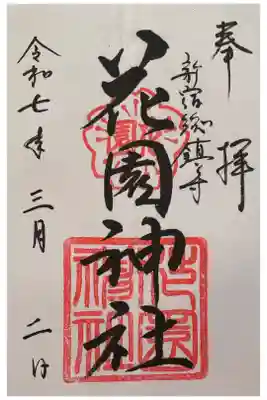 奉拝
新宿総鎮守
花園神社
令和七年三月二日
花園神社